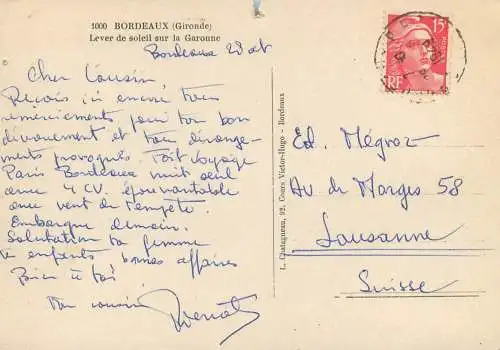 1000 BORDEAUX (Gironde)
Lever de soleil sur la Garonne
Bordeaux 23 oct
Cher Cousin
Reçois ici encore tous
remerciements pour ton bon
dévouement et tous dérange-
ments provoqués. Fait voyage
Paris Bordeaux nuit seul
avec 4 CV. épouvantable
avec vent de tempête.
Embarque demain.
Salutation ta femme
te enfants bonnes affaires
Bien à toi
Ton cousin
L. Chatagneau, 92, Cours Victor-Hugo - Bordeaux
15F
RF
Ed. Mégroz
Av de Morges 58
Lausanne
Suisse